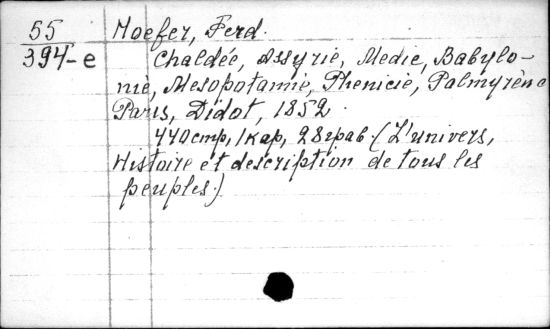 55
394-e
Hoefer, Ferd.
Chaldée, Assyrie, Medie, Babylo-
nie, Mesopotamie, Phenicie, Palmyrène
Paris, Didot, 1852.
440 стр, 1 кар, 28 грав. (L'univers,
Histoire et description de tous les
peuples.)